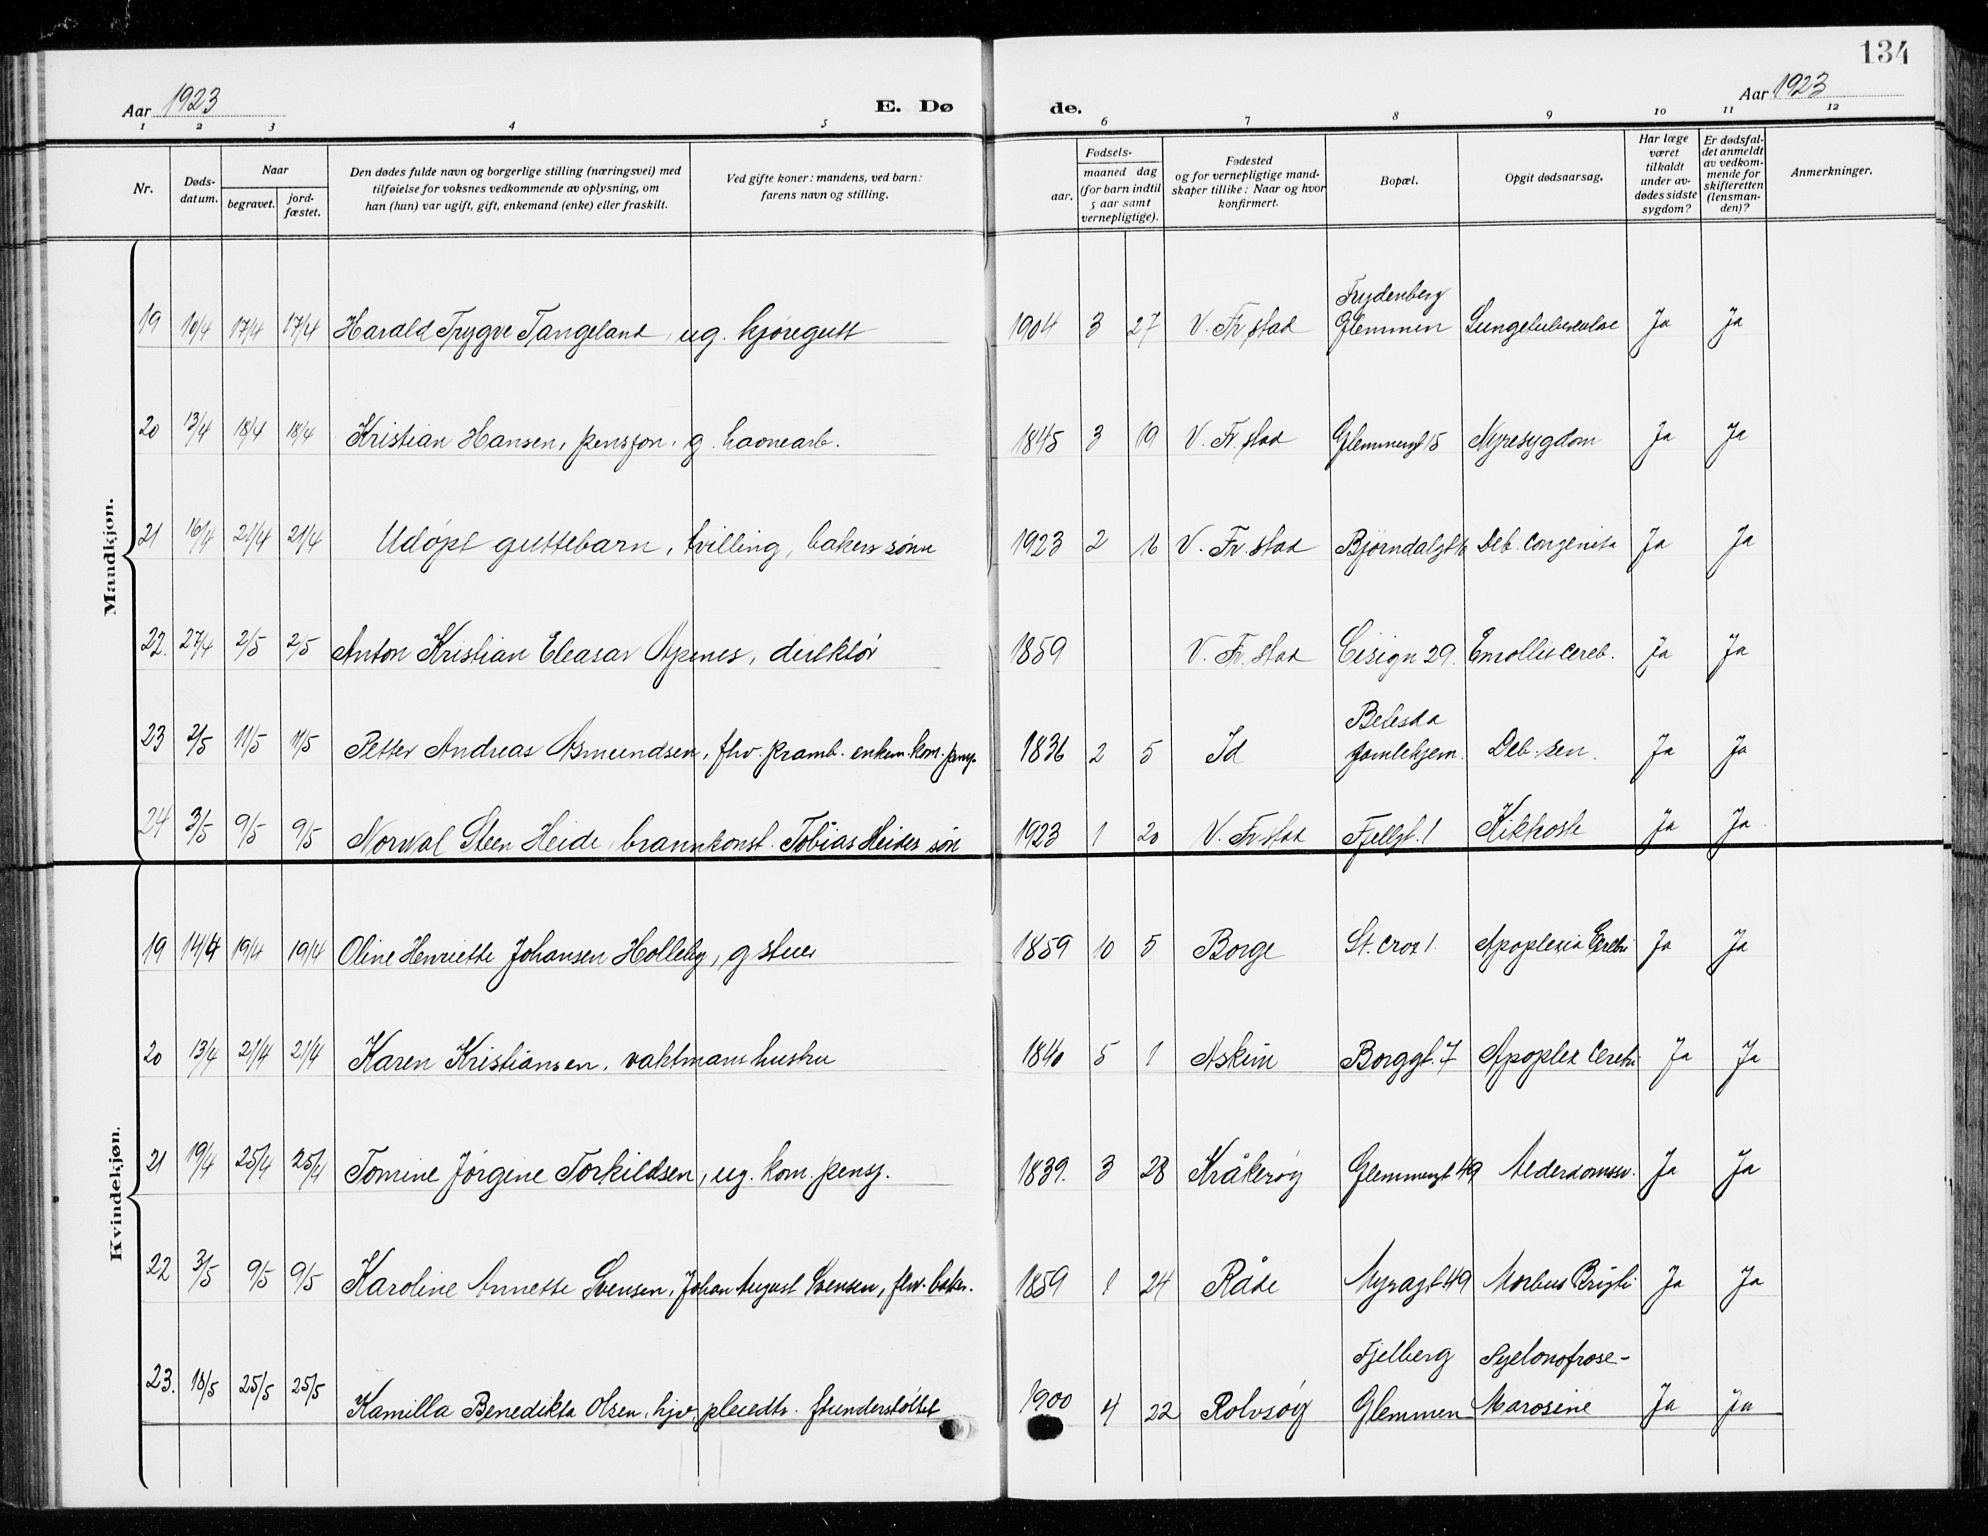 134
Aar 1923 E. Dø de. Aar 1923
1 2 3 4 5 6 7 8 9 10 11 12
Nr. Døds-datum. Naar begravet. jord-fæstet. Den dødes fulde navn og borgerlige stilling (næringsvei) med tilføielse for voksnes vedkommende av oplysning, om han (hun) var ugift, gift, enkemand (enke) eller fraskilt. Ved gifte koner: mandens, ved barn: farens navn og stilling. Fødsels- aar. maaned dag (for barn indtil 5 aar samt vernepligtige). Fødested og for vernepligtige mand-skaper tillike: Naar og hvor konfirmert. Bopæl. Opgit dødsaarsag. Har læge været tilkaldt under av-dødes sidste sygdom? Er dødsfal-det anmeldt av vedkom-mende for skifteretten (lensman-den)? Anmerkninger.
Mandkjøn.
19 10/4 17/4 17/4 Harald Trygve Tangeland, ug. kjøregutt 1904 3 27 V. Fr.stad Frydenberg Glemmen Lungetuberkulose Ja Ja
20 13/4 18/4 18/4 Kristian Hansen, pensjon. g. havnearb. 1845 3 19 V. Fr.stad Glemmengt 15 Nyresygdom Ja Ja
21 16/4 21/4 21/4 Udøpt guttebarn, tvilling, bakers sønn 1923 2 16 V. Fr.stad Bjørndalgt Deb. congenita Ja Ja
22. 27/4 2/5 2/5 Anton Kristian Eleasar Apenes, direktør 1859 V. Fr.stad Cisign 29. Emollit cereb. Ja Ja
23 2/5 11/5 11/5 Petter Andreas Asmundsen, fhv. kramb. enkem. kom. pensj. 1836 2 5 Id Betesda gamlehjem. Deb. sen. Ja Ja
24 3/5 9/5 9/5 Norval Steen Heide, brannkonst. Tobias Heides søn 1923 1 20 V. Fr.stad Fjellgt. 1 Kikhoste Ja Ja
Kvindekjøn.
19 14/4 19/4 19/4 Oline Henriette Johansen Holleby, g stuer 1859 10 5 Borge St. croix 1. Apoplexia Cerebri Ja Ja
20 13/4 21/4 21/4 Karen Kristiansen, vaktmans hustru 1840 5 1 Askim Borggt. 7 Apoplex Cerebri Ja Ja
21 19/4 25/4 25/4 Tomine Jørgine Torkildsen, ug. kom. pensj. 1839. 3 28 Kråkerøy Glemmengt 49 Alderdomssv. Ja Ja
22 3/5 9/5 9/5 Karoline Annette Svensen, Johan August Svensen, fhv. baker. 1859 1 24 Råde Myragt 49 Morbus Brigti Ja Ja
23. 18/5 25/5 25/5 Kamilla Benedikta Olsen, hjv. pleiedtr. funderstøttet 1900 4 22 Rolvsøy Fjelberg Glemmen Ja Ja